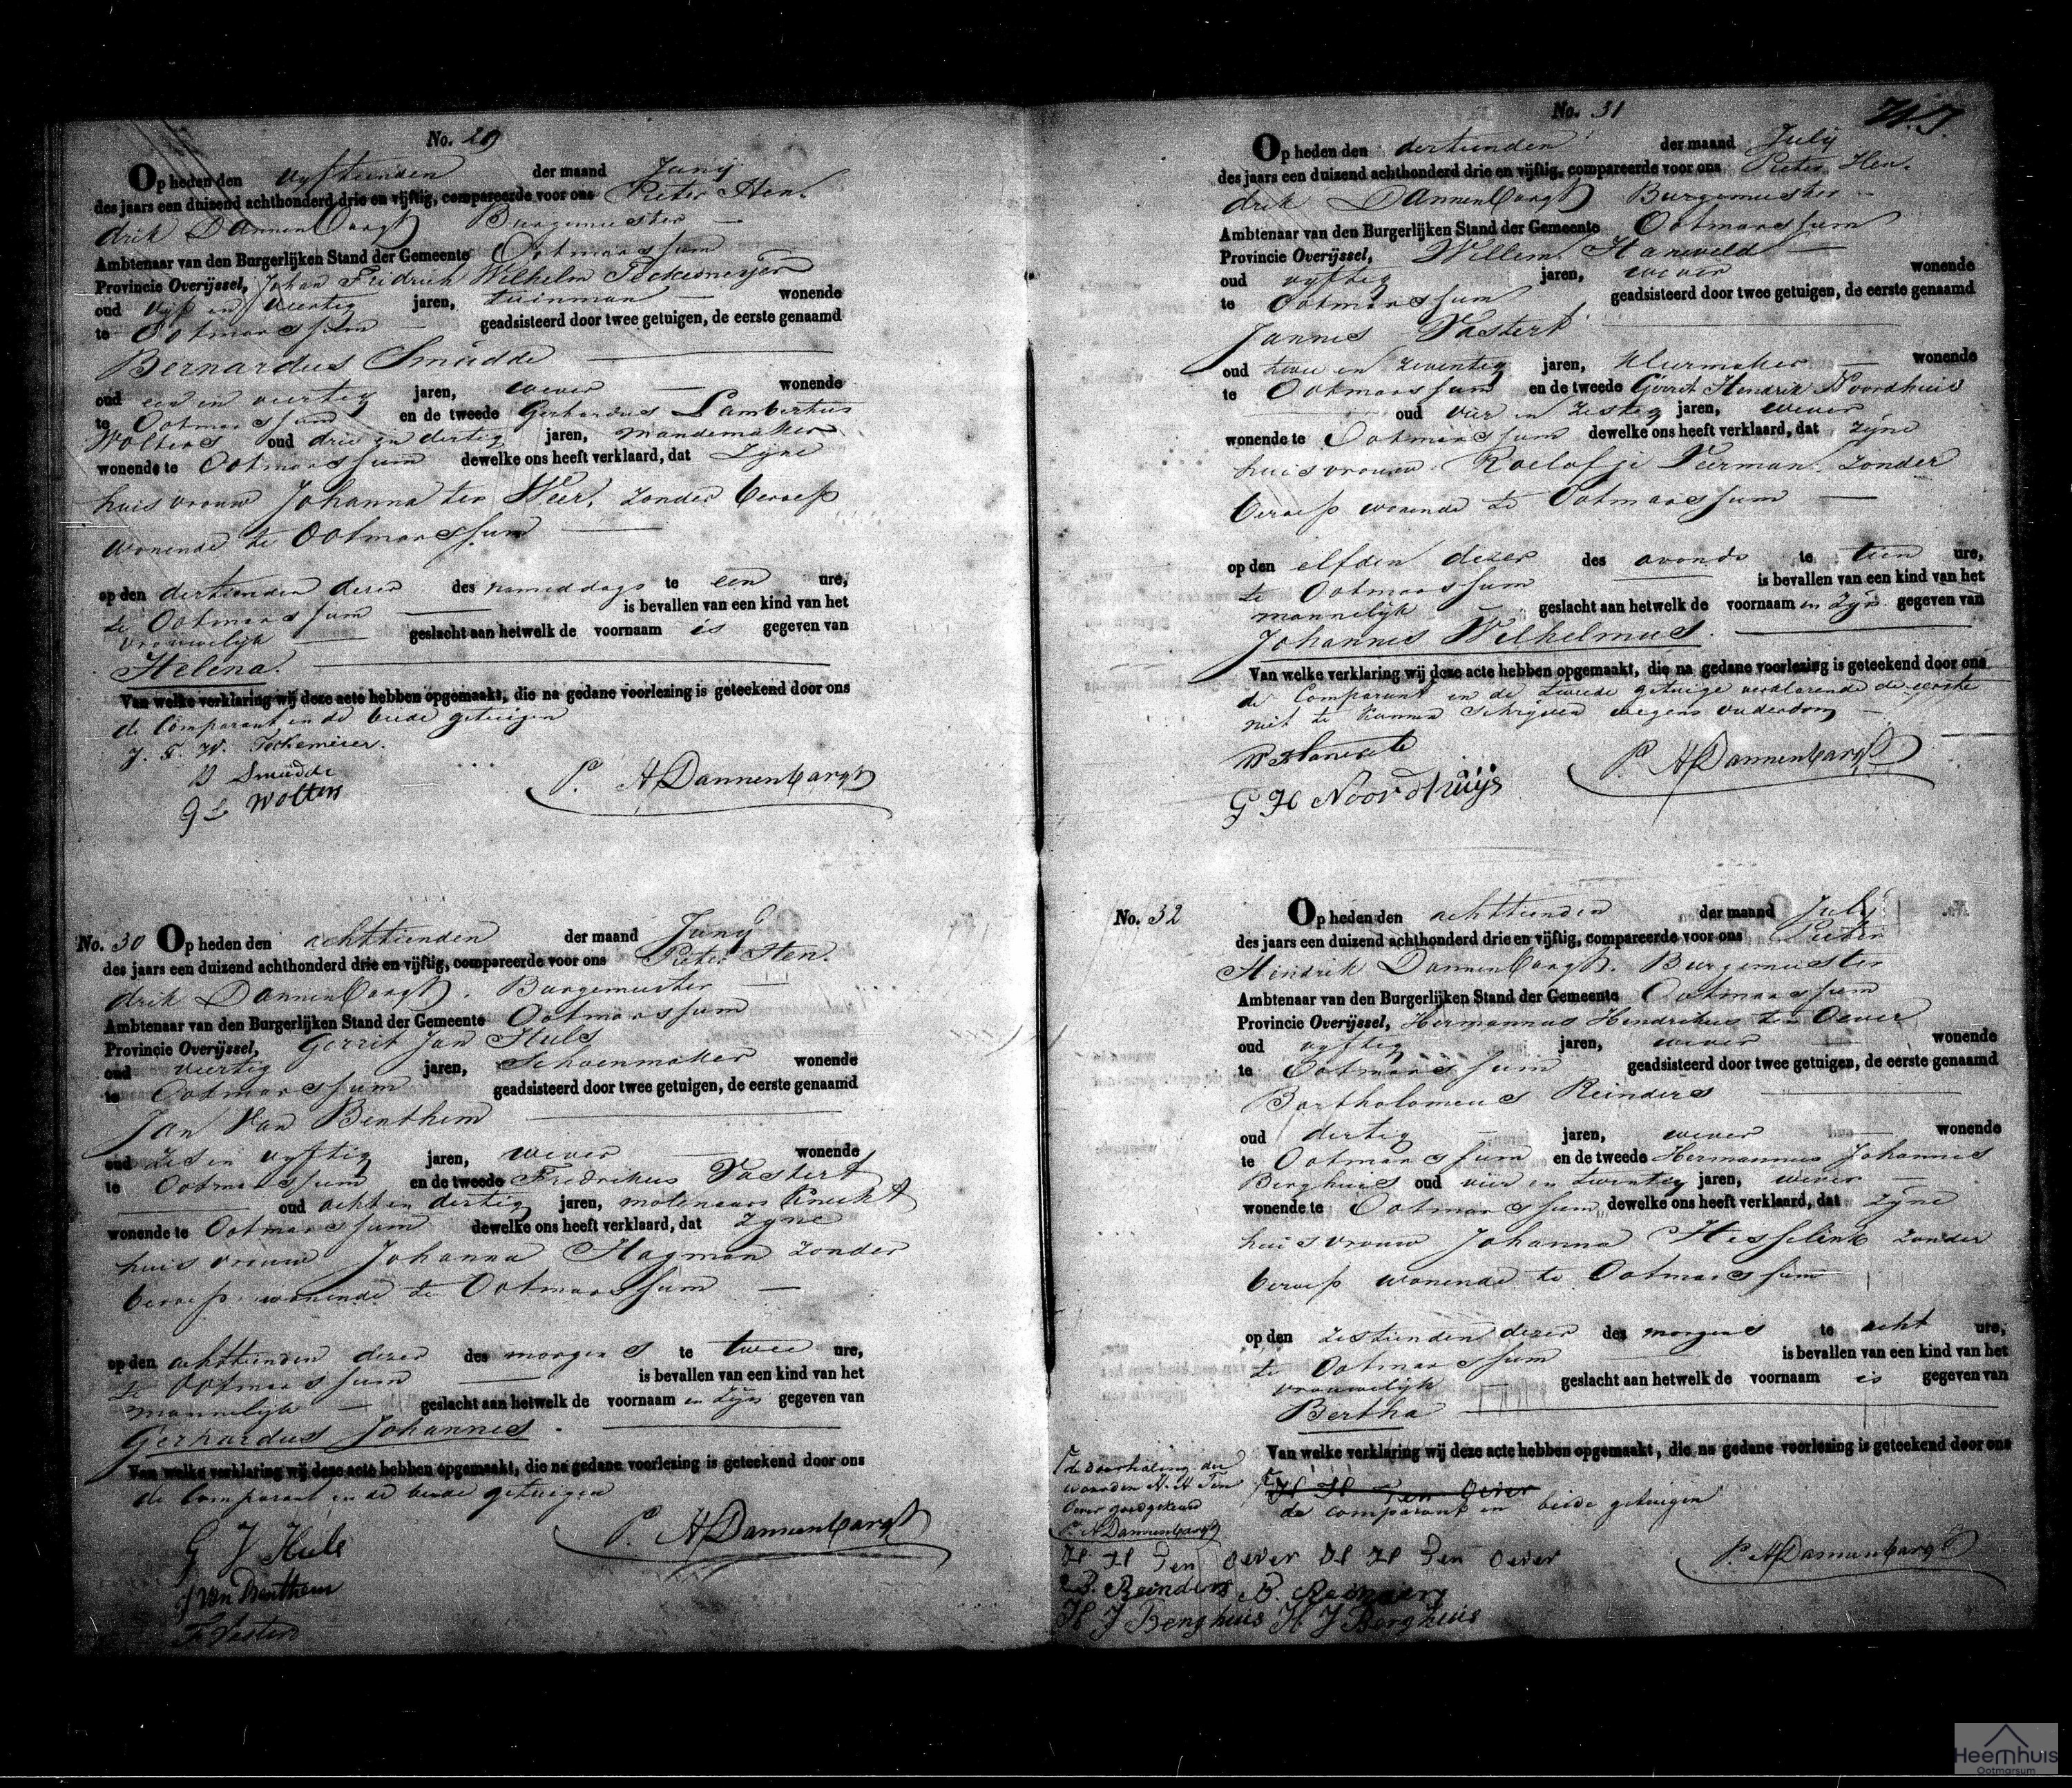 No. 29
Op heden den vyftienden der maand Juny
des jaars een duizend achthonderd drie en vijftig, compareerde voor ons Pieter Hen-
drik Dannenbargh Burgemeester
Ambtenaar van den Burgerlijken Stand der Gemeente Ootmarssum
Provincie Overijssel, Johan Fridrich Wilhelm
oud vyf en veertig jaren, tuinman wonende
te Ootmarssum geadsisteerd door twee getuigen, de eerste genaamd
Bernardus Smudde
oud een en veertig jaren, wever wonende
te Ootmarssum en de tweede Gerhardus Lambertus
Wolters oud drie en dertig jaren, mandemaker
wonende te Ootmarssum dewelke ons heeft verklaard, dat zyne
huisvrouw Johanna ter Weer, zonder beroep
wonende te Ootmarssum
op den dertienden dezer des nameddags te een ure,
te Ootmarssum is bevallen van een kind van het
vrouwelyk geslacht aan hetwelk de voornaam is gegeven van
Helena.
Van welke verklaring wij deze acte hebben opgemaakt, die na gedane voorlezing is geteekend door ons
de Comparant en de beide getuigen
J. F. W.
B Smudde
G L Wolters
P. H Dannenbargh
No. 30 Op heden den achttienden der maand Juny
des jaars een duizend achthonderd drie en vijftig, compareerde voor ons Pieter Hen-
drik Dannenbargh. Burgemeester
Ambtenaar van den Burgerlijken Stand der Gemeente Ootmarssum
Provincie Overijssel, Gerrit Jan Huls
oud veertig jaren, Schoenmaker wonende
te Ootmarssum geadsisteerd door twee getuigen, de eerste genaamd
Jan Van Benthem
oud zes en vyftig jaren, wever wonende
te Ootmarssum en de tweede Fredrikus Vastert
oud acht en dertig jaren, molenaars knecht
wonende te Ootmarssum dewelke ons heeft verklaard, dat zyne
huisvrouw Johanna Hagman zonder
beroep wonende te Ootmarssum
op den achttienden dezer des morgens te twee ure,
te Ootmarssum is bevallen van een kind van het
mannelyk geslacht aan hetwelk de voornaam en zyn gegeven van
Gerhardus Johannes.
Van welke verklaring wij deze acte hebben opgemaakt, die na gedane voorlezing is geteekend door ons
de Comparant en de beide getuigen
G J Huls
J Van Benthem
F Vastert
P. H Dannenbargh
No. 31
Op heden den dertienden der maand July
des jaars een duizend achthonderd drie en vijftig, compareerde voor ons Pieter Hen-
drik Dannenbargh Burgemeester
Ambtenaar van den Burgerlijken Stand der Gemeente Ootmarssum
Provincie Overijssel, Willem Haneveld
oud vyftig jaren, wever wonende
te Ootmarssum geadsisteerd door twee getuigen, de eerste genaamd
Jannes Vastert
oud twee en zeventig jaren, kleermaker wonende
te Ootmarssum en de tweede Gerrit Hendrik Noordhuis
oud vier en zestig jaren, wever
wonende te Ootmarssum dewelke ons heeft verklaard, dat zyne
huisvrouw Roelofje Veerman zonder
beroep wonende te Ootmarssum
op den elfden dezer des avonds te tien ure,
te Ootmarssum is bevallen van een kind van het
mannelyk geslacht aan hetwelk de voornaam en zyn gegeven van
Johannes Wilhelmus.
Van welke verklaring wij deze acte hebben opgemaakt, die na gedane voorlezing is geteekend door ons
de Comparant en de tweede getuige verklarende de eerste
niet te kunnen schryven wegens ouderdom
G H Noordhuijs
P. H Dannenbargh
No. 32 Op heden den achttienden der maand July
des jaars een duizend achthonderd drie en vijftig, compareerde voor ons Pieter
Hendrik Dannenbargh. Burgemeester
Ambtenaar van den Burgerlijken Stand der Gemeente Ootmarssum
Provincie Overijssel, Hermannus Hendrikus ten Oever
oud vyftig jaren, wever wonende
te Ootmarssum geadsisteerd door twee getuigen, de eerste genaamd
Bartholomeus Reinders
oud dertig jaren, wever wonende
te Ootmarssum en de tweede Hermannus Johannes
Berghuis oud vier en twentig jaren, wever
wonende te Ootmarssum dewelke ons heeft verklaard, dat zyne
huisvrouw Johanna Hesselink zonder
beroep wonende te Ootmarssum
op den zestienden dezer des morgens te acht ure,
te Ootmarssum is bevallen van een kind van het
vrouwelyk geslacht aan hetwelk de voornaam is gegeven van
Bertha
Van welke verklaring wij deze acte hebben opgemaakt, die na gedane voorlezing is geteekend door ons
H H Ten Oever
de comparant en beide getuigen
de doorhaling der
woorden H. H Ten
Oever goedgekeurd
P. H Dannenbargh
H H Ten Oever H H Ten Oever
B. Reinders B. Reinders
H J Berghuis H J Berghuis
P. H Dannenbargh
Heemhuis
Ootmarsum